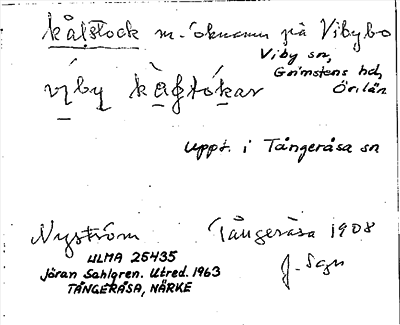 kålstock m. öknamn på Vibybo
Viby sn,
Grimstens hd,
Ör. län
viby kålstókar
uppt. i Tångeråsa sn
Nyström Tångeråsa 1908
ULMA 25435 J. Sagn
Jöran Sahlgren. Utred. 1963
TÅNGERÅSA, NÄRKE